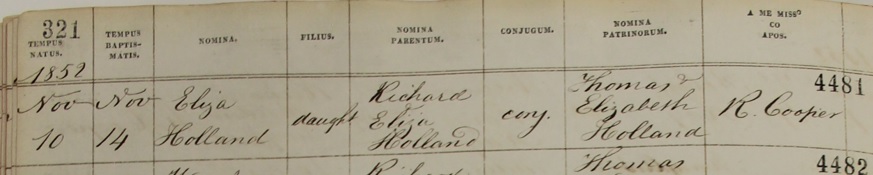 321
TEMPUS NATUS.
TEMPUS BAPTIS- MATIS.
NOMINA.
FILIUS.
NOMINA PARENTUM.
CONJUGUM.
NOMINA PATRINORUM.
A ME MISSº CO APOS.
1852
4481
Nov Nov Eliza daught Richard conj. Thomas & R. Cooper
10 14 Holland Eliza Elizabeth
Holland Holland
Thomas 4482